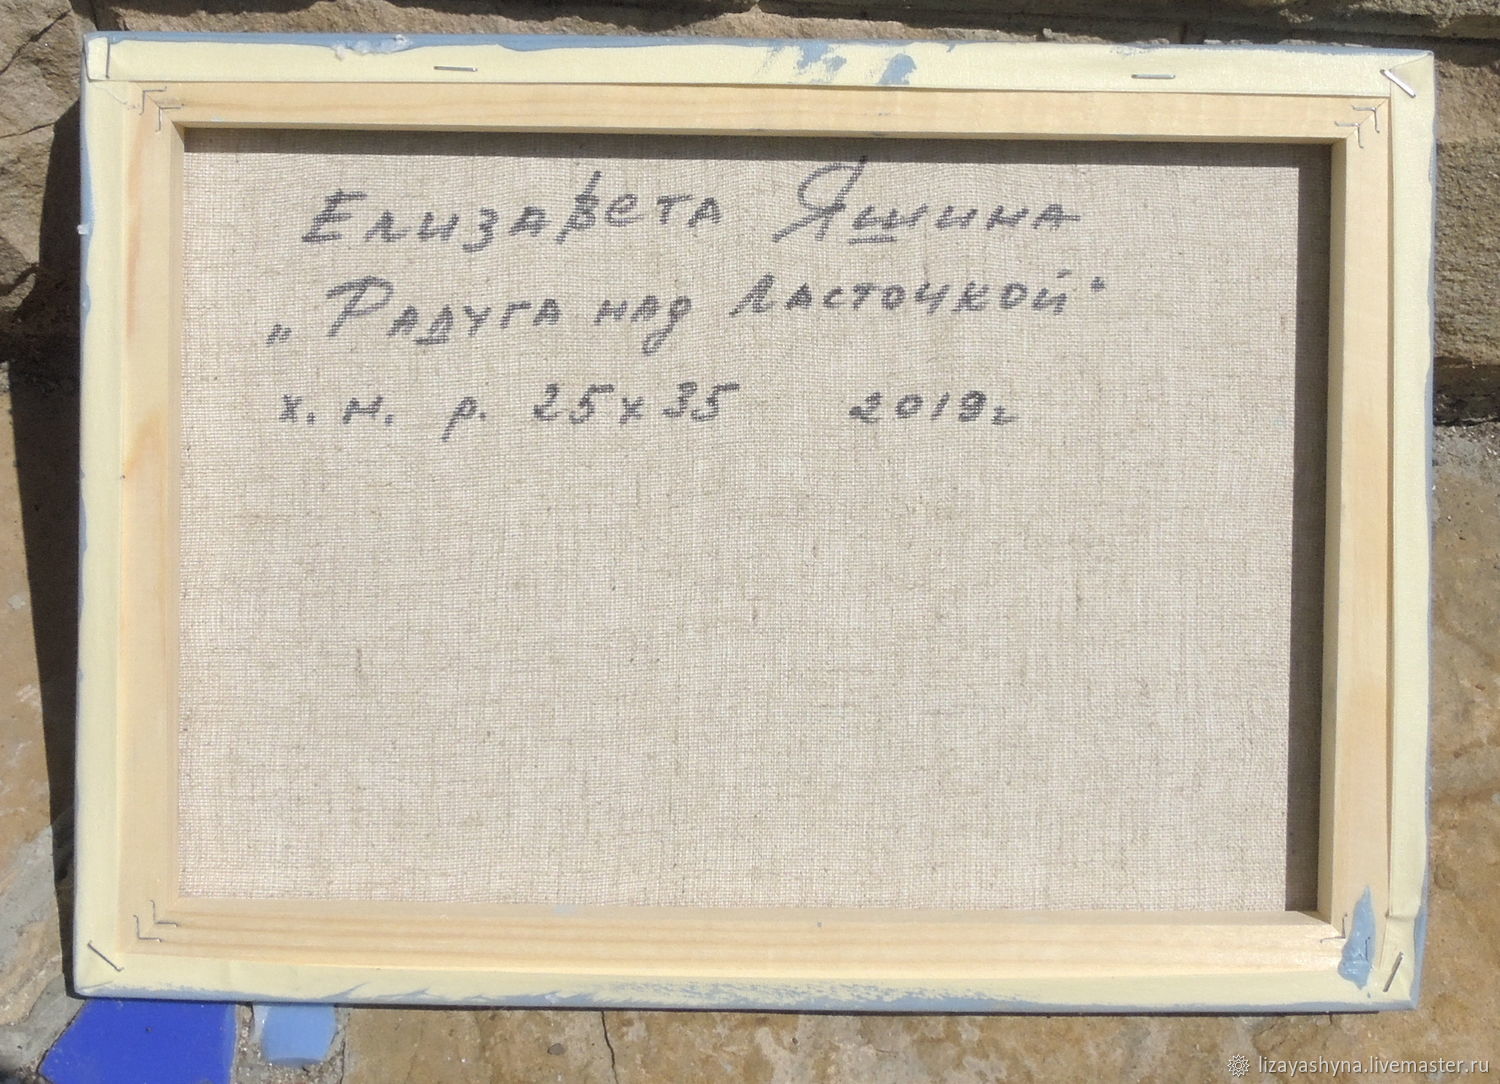 Елизавета Яшина
„Радуга над Ласточкой"
х. м. р. 25х35 2019г
lizayashyna.livemaster.ru